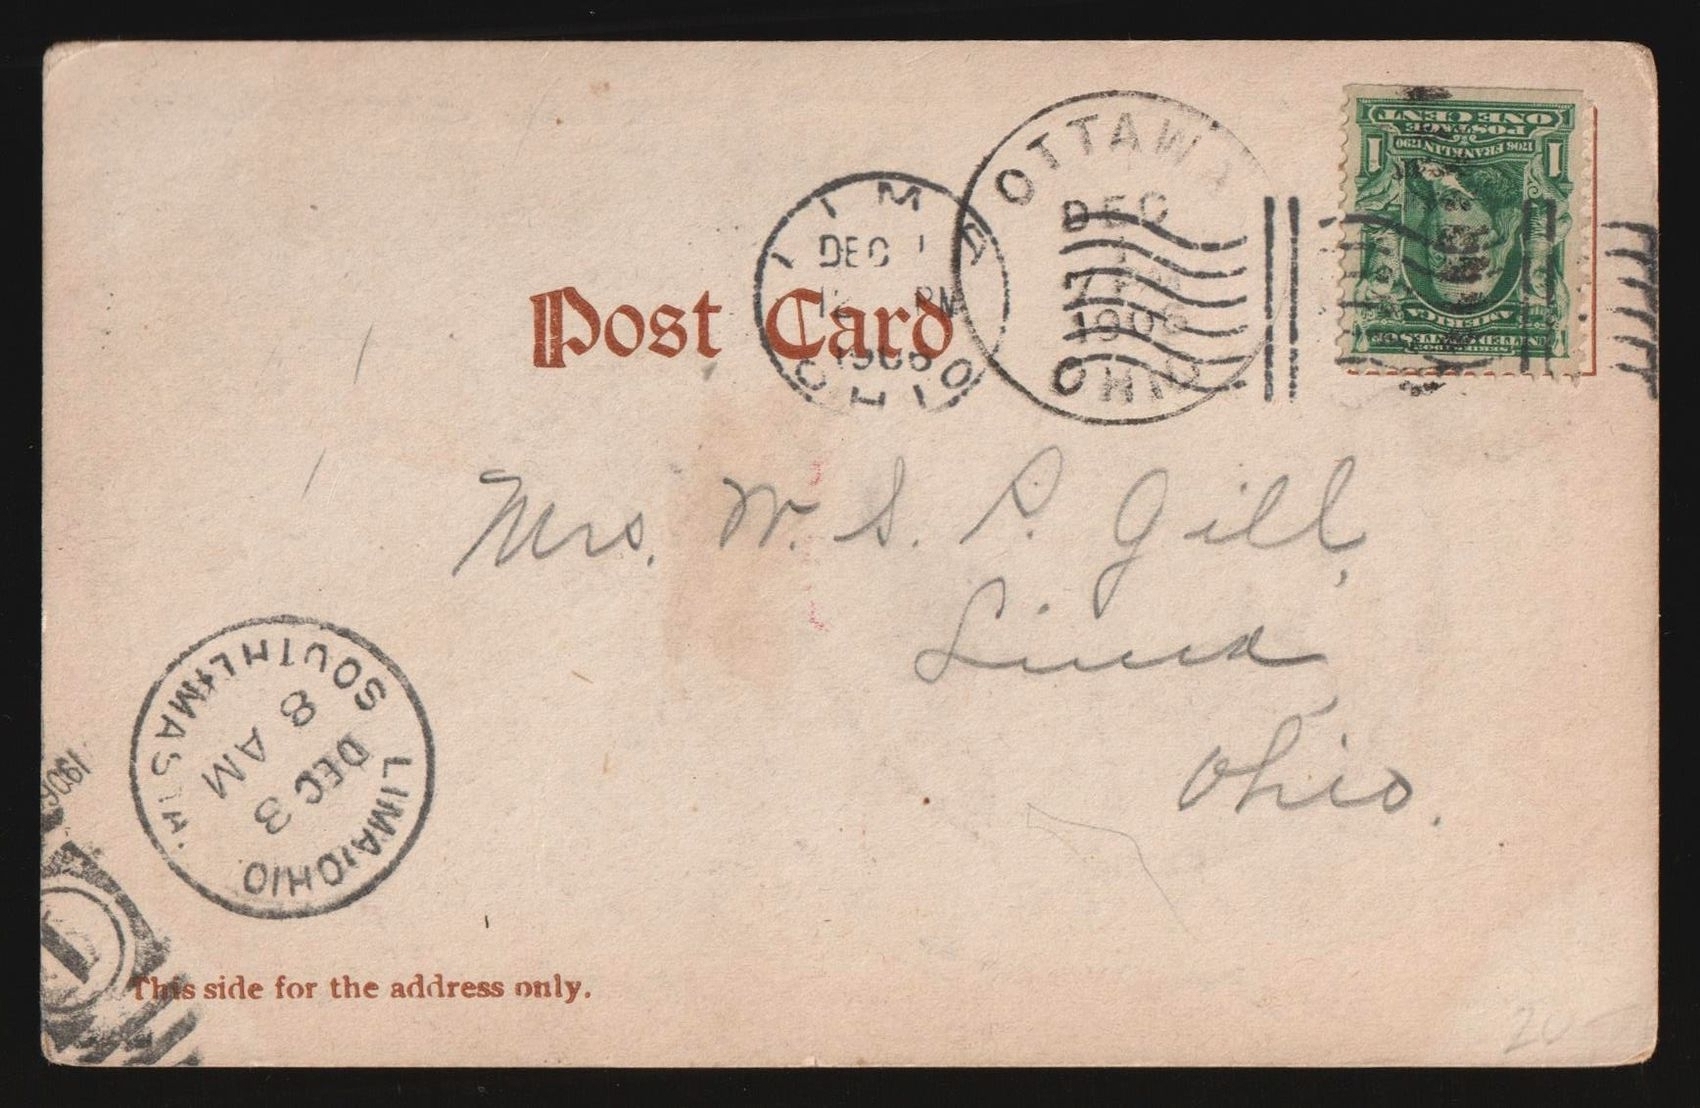 OTTAWA
DEC
1
7 PM
1906
OHIO
LIMA
DEC 1
12 PM
1906
OHIO
ONE CENT
POSTAGE
1706 FRANKLIN 1790
1 1
AMERICA
Post Card
Mrs. W. S. P. Gill,
Lima,
Ohio.
LIMA, OHIO
DEC 3
8 AM
SOUTH LIMA STA.
1906
1
This side for the address only.
20